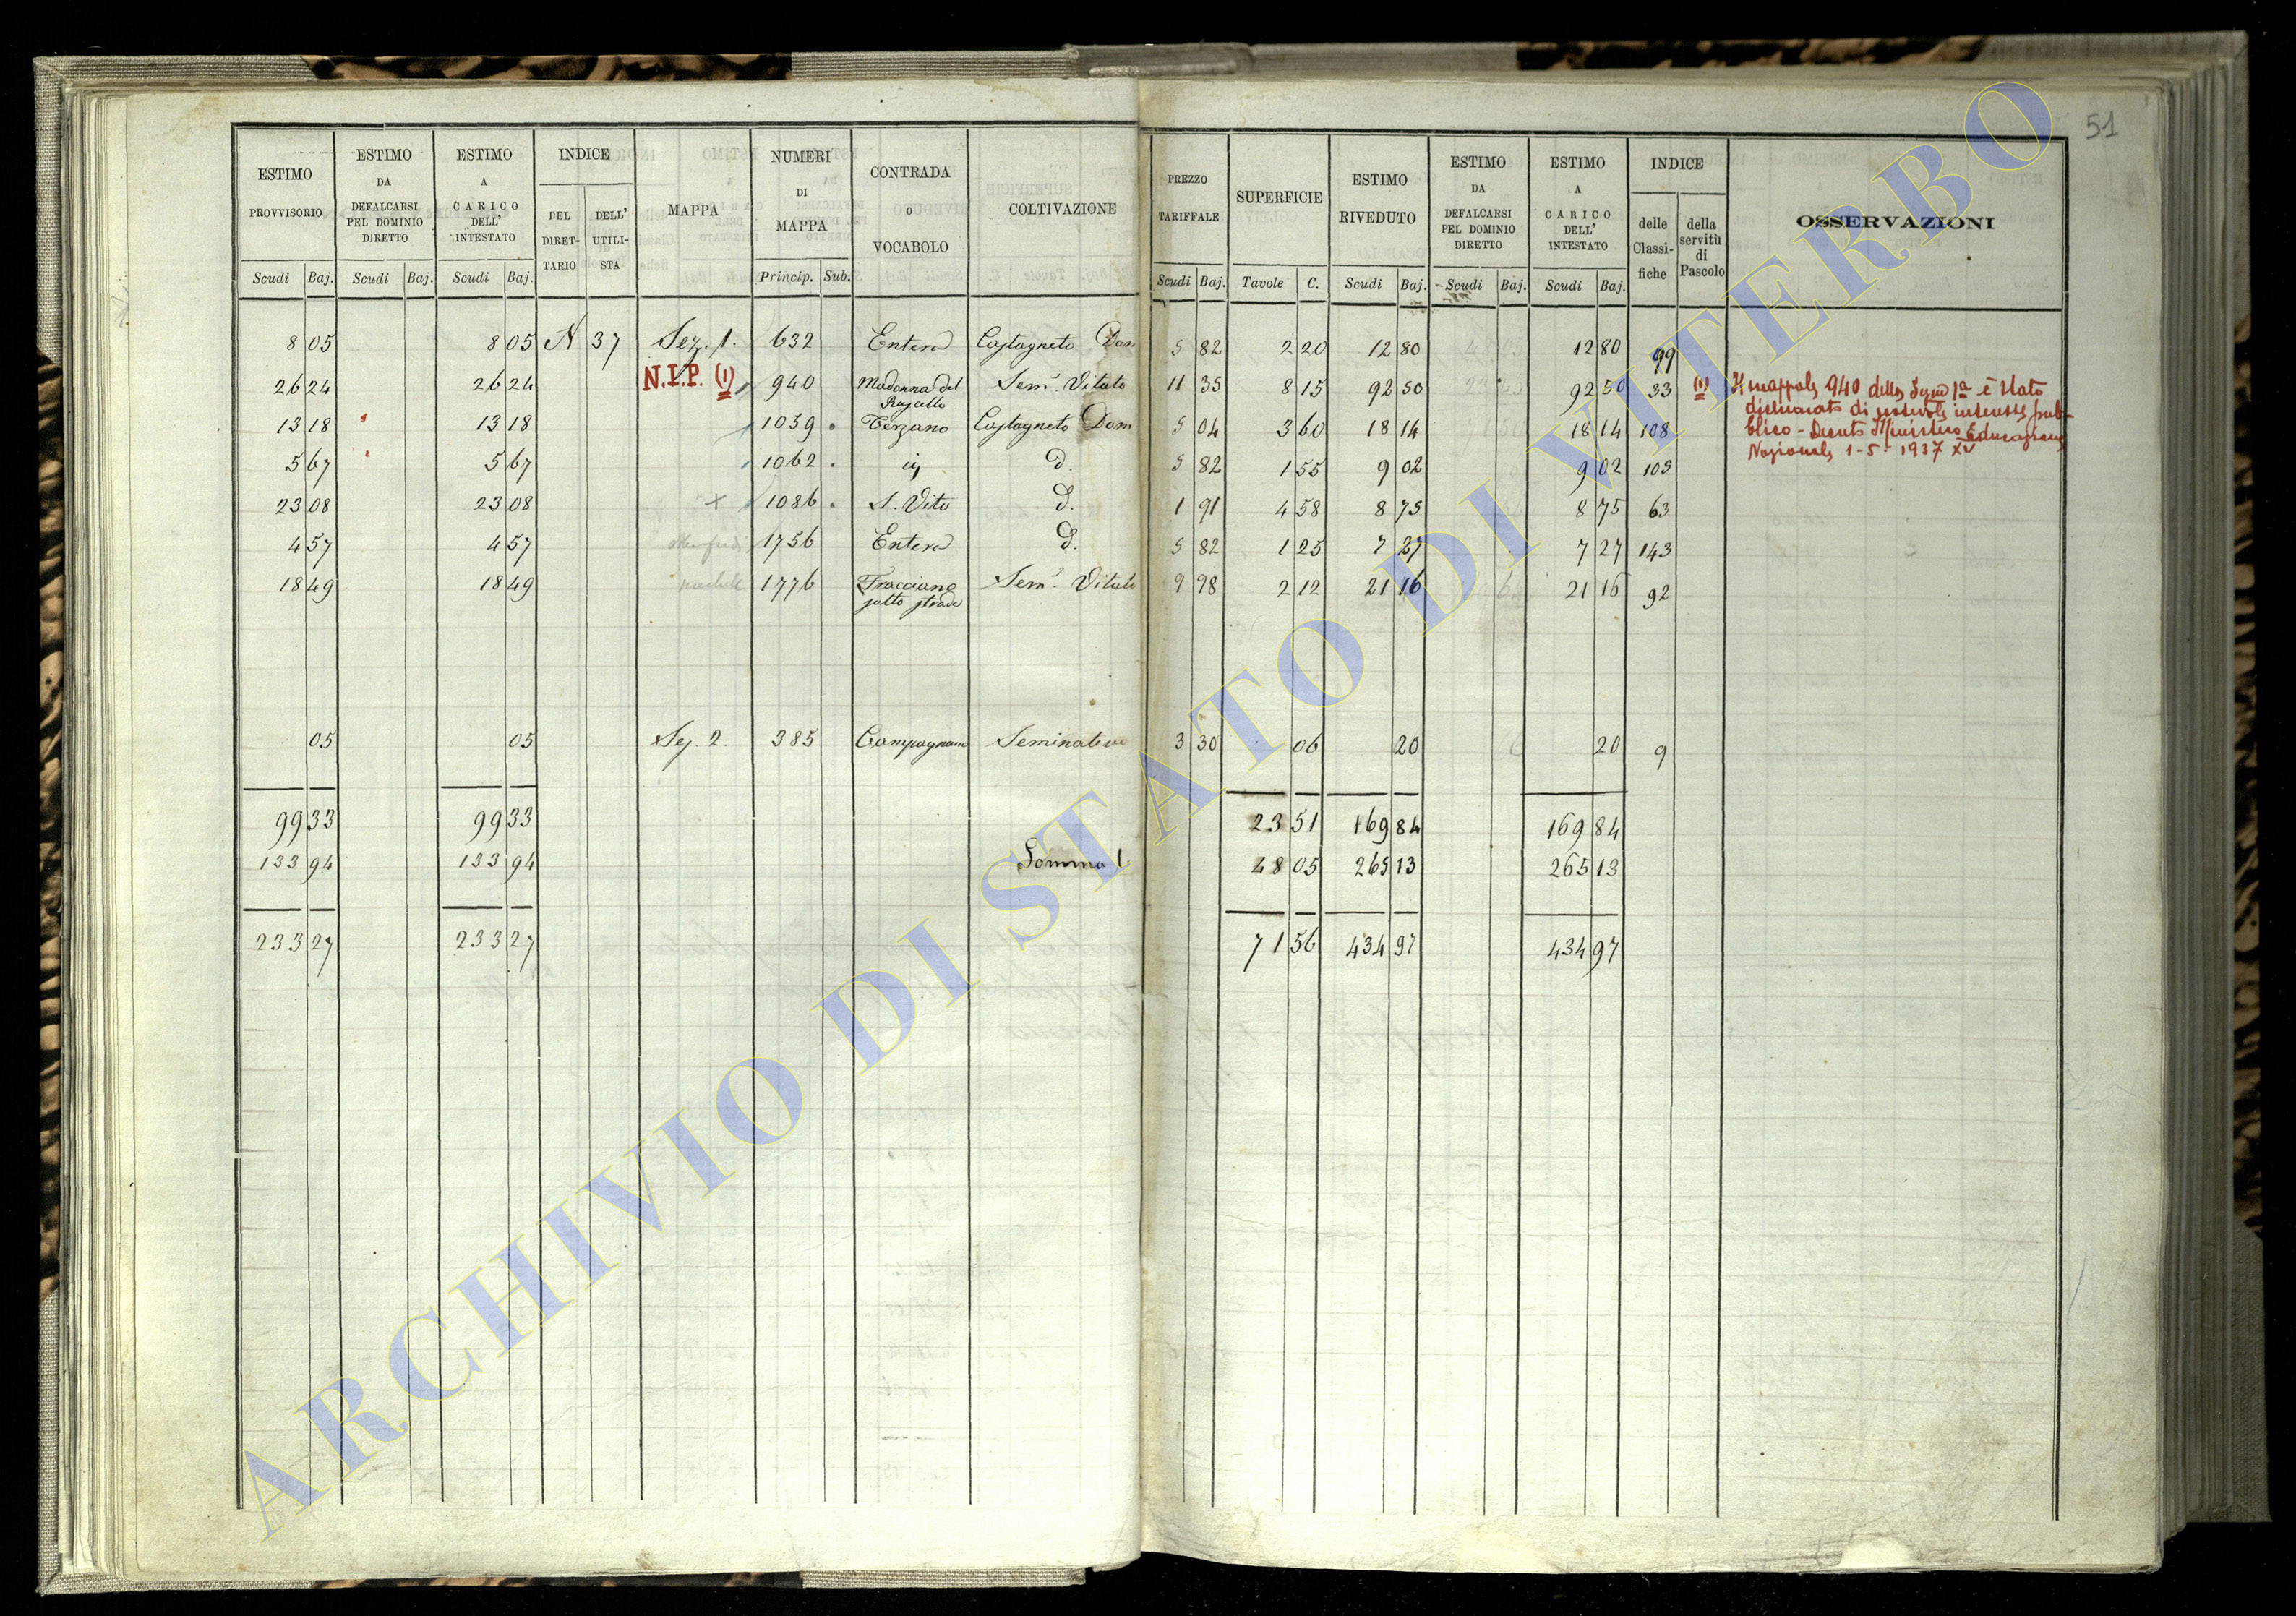 51
ESTIMO PROVVISORIO Scudi Baj. ESTIMO DA DEFALCARSI PEL DOMINIO DIRETTO Scudi Baj. ESTIMO A CARICO DELL' INTESTATO Scudi Baj. INDICE DEL DIRET-TARIO DELL' UTILI-STA MAPPA NUMERI DI MAPPA Princip. Sub. CONTRADA o VOCABOLO COLTIVAZIONE PREZZO TARIFFALE Scudi Baj. SUPERFICIE Tavole C. ESTIMO RIVEDUTO Scudi Baj. ESTIMO DA DEFALCARSI PEL DOMINIO DIRETTO Scudi Baj. ESTIMO A CARICO DELL' INTESTATO Scudi Baj. INDICE delle Classi-fiche della servitù di Pascolo OSSERVAZIONI
8 05 8 05 N 37 Sez. 1. 632 Entera Castagneto Dom 5 82 2 20 12 80 12 80 99
26 24 26 24 N.I.P. (1) 940 Madonna del Ruscello Sem. Vitato 11 35 8 15 92 50 92 50 33 (1) Il mappale 940 della Sezne 1a è stato
dichiarato di notevole interesse pub-
blico - Decreto Ministero Educazione
Nazionale 1-5-1937 XV
13 18 13 18 1039 Terzano Castagneto Dom 5 04 3 60 18 14 18 14 108
5 67 5 67 1062 d. 5 82 1 55 9 02 9 02 109
23 08 23 08 1086 S. Vito d. 1 91 4 58 8 75 8 75 63
4 57 4 57 1756 Entera d. 5 82 1 25 7 27 7 27 143
18 49 18 49 1776 Fracciano sotto strada Sem. Vitato 9 98 2 12 21 16 21 16 92
05 05 Sez. 2. 385 Campagnano Seminativo 3 30 06 20 20 9
99 33 99 33 23 51 169 84 169 84
133 94 133 94 Somma 48 05 265 13 265 13
233 27 233 27 71 56 434 97 434 97
ARCHIVIO DI STATO DI VITERBO